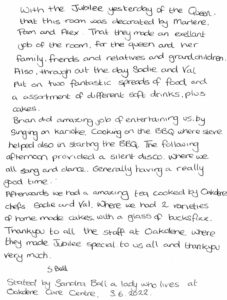 With the Jubilee yesterday of the Queen,
that this room was decorated by Marlene,
Pam and Alex. That they made an exellant
job of the room, for the queen and her
family, friends and relatives and grandchildren.
Also, through out the day Sadie and Val
Put on two fantastic spreads of food and
a assortment of different soft drinks, plus
cakes.
Brian did amazing job of entertaining us, by
Singing on karaoke, Cooking on the BBQ where steve
helped also in starting the BBQ. The following
afternoon provided a silent disco. Where we
all sang and dance. Generally having a really
good time.
Afterwards we had a amazing tea cooked by Oakdene
chefs Sadie and Val, Where we had 2 varieties
of home made cakes, with a glass of bucksfizz.
Thankyou to all the staff at Oakdene, where
they made Jubilee special to us all and thankyou
very much.
S Ball
Stated by Sandra Ball a lady who lives at
Oakdene Care Centre, 3.6.2022.